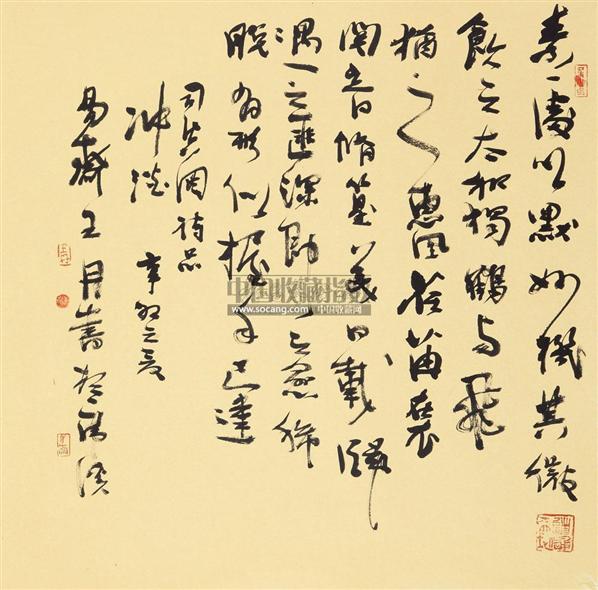 素處以默妙機其微
飲之太和獨鶴与飛
猶之惠風荏苒在衣
閱音脩篁美曰載歸
遇之匪深即之愈稀
脫有形似握手已違
司空圖詩品
冲淡 辛卯之夏
易齋王月書於
中国收藏指数
www.socang.com 中国收藏网